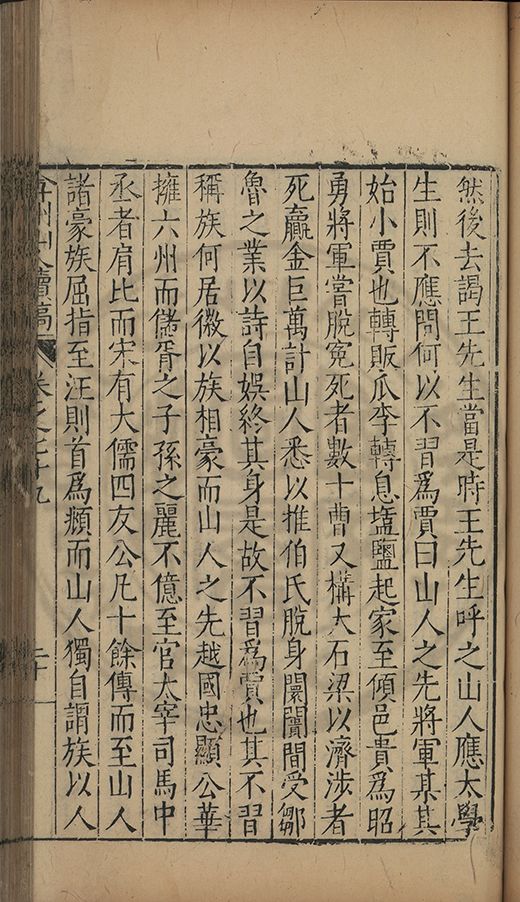 然後去謁王先生當是時王先生呼之山人應太學
生則不應問何以不習為賈曰山人之先將軍某其
始小賈也轉販瓜李轉息塩鹽起家至傾邑貴為昭
勇將軍嘗脫冤死者數十曹又構大石梁以濟涉者
死藏金巨萬計山人悉以推伯氏脫身闤闠間受鄒
魯之業以詩自娛終其身是故不習為賈也其不習
稱族何居徽以族相豪而山人之先越國忠顯公華
擁六州而儲胥之子孫之麗不億至官太宰司馬中
丞者肩比而宋有大儒四友公凡十餘傳而至山人
諸豪族屈指至汪則首為頫而山人獨自謂族以人
弇州山人續稿 卷之七十九